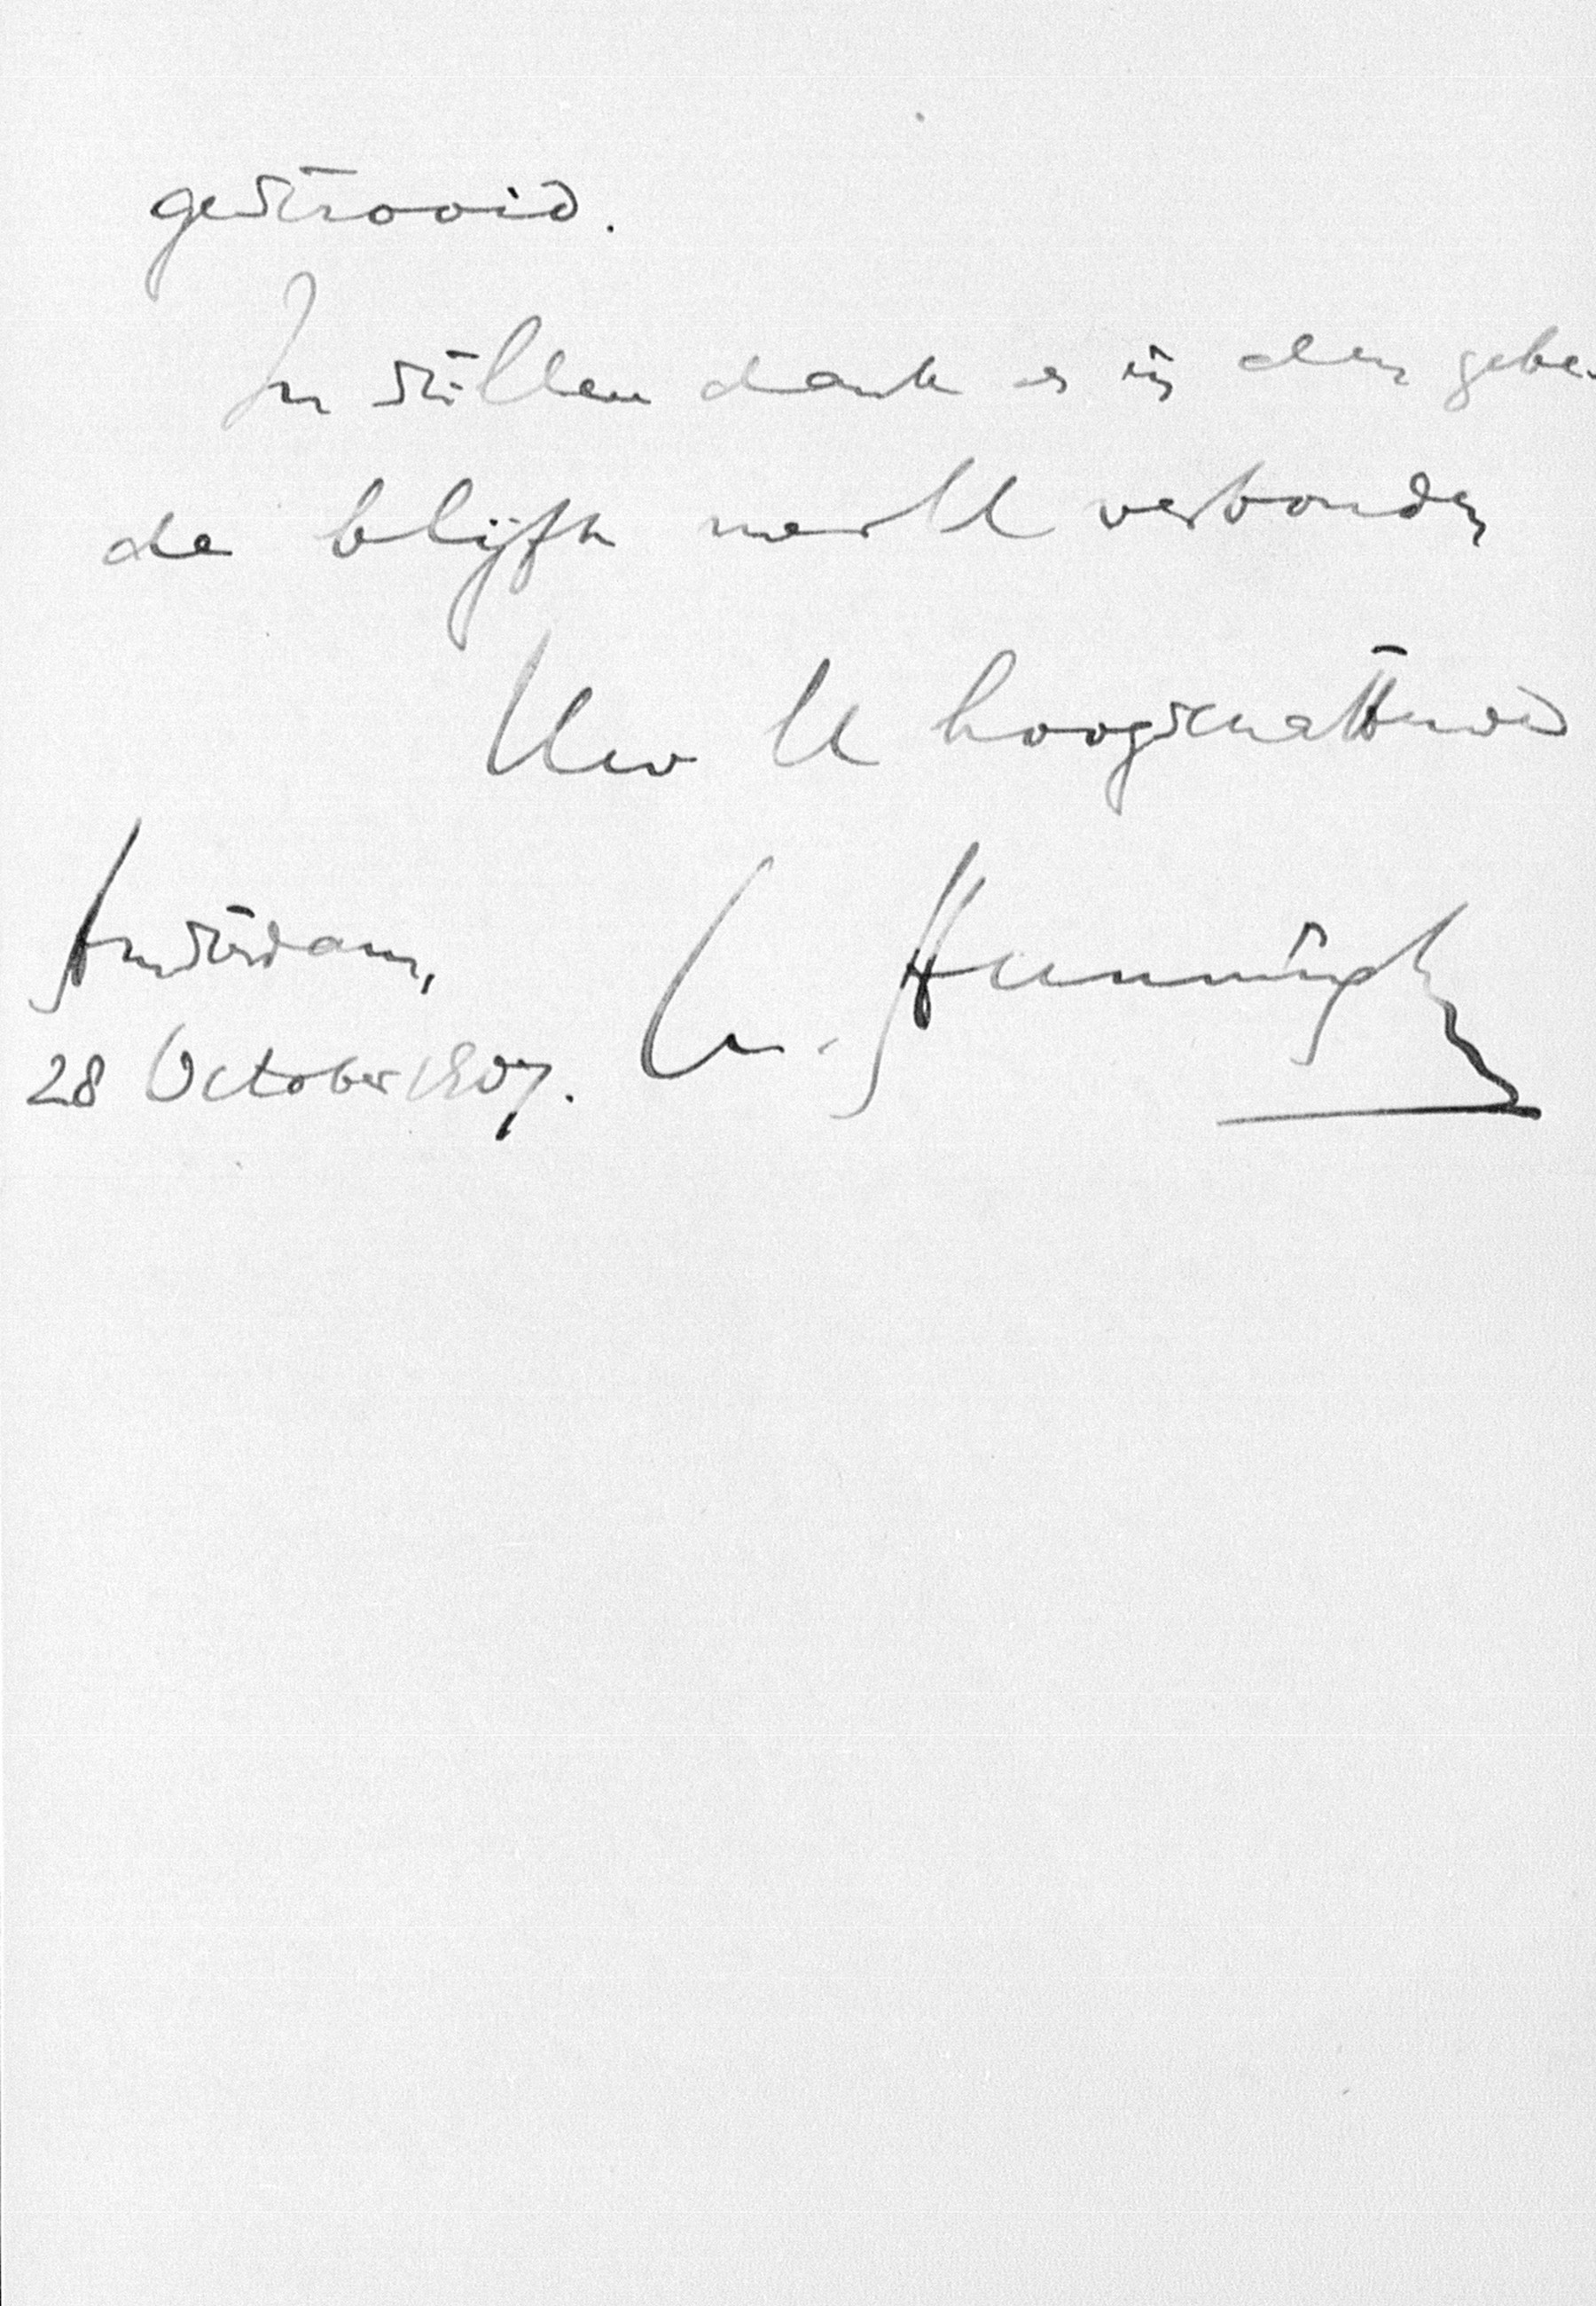 gestrooid.
In stillen dank en in den gebe-
de blijft met U verbonden
Uw U hoogschattend
Amsterdam,
28 October 1907.